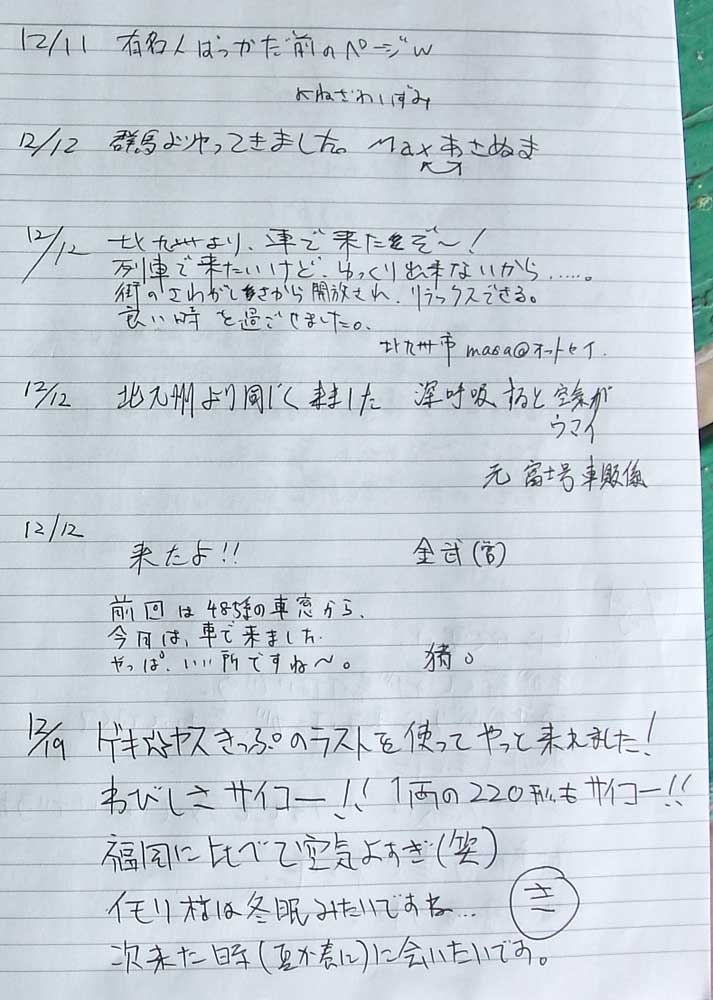 12/11 有名人ばっかだ前のページw
よねざわいずみ
12/12 群馬よりやってきました。Maxあさぬま
12/12 北九州より、車で来たぞ〜!
列車で来たいけど、ゆっくり出来ないから……。
街のさわがしさから開放され、リラックスできる。
良い時を過ごせました。
北九州市 masa@オットセイ.
12/12 北九州より同じく来ました 深呼吸すると空気が
ウマイ
元 富士号車販係
12/12
来たよ!! 金武(宮)
前回は485系の車窓から、
今月は、車で来ました.
やっぱ、いい所ですね〜。 猪。
12/19 ゲキヤスきっぷのラストを使ってやっと来れました!
わびしさサイコー!! 1両の220形もサイコー!!
福岡に比べて空気よすぎ(笑)
イモリ村は冬眠みたいですね… き
次来た時(夏か春に)に会いたいです。